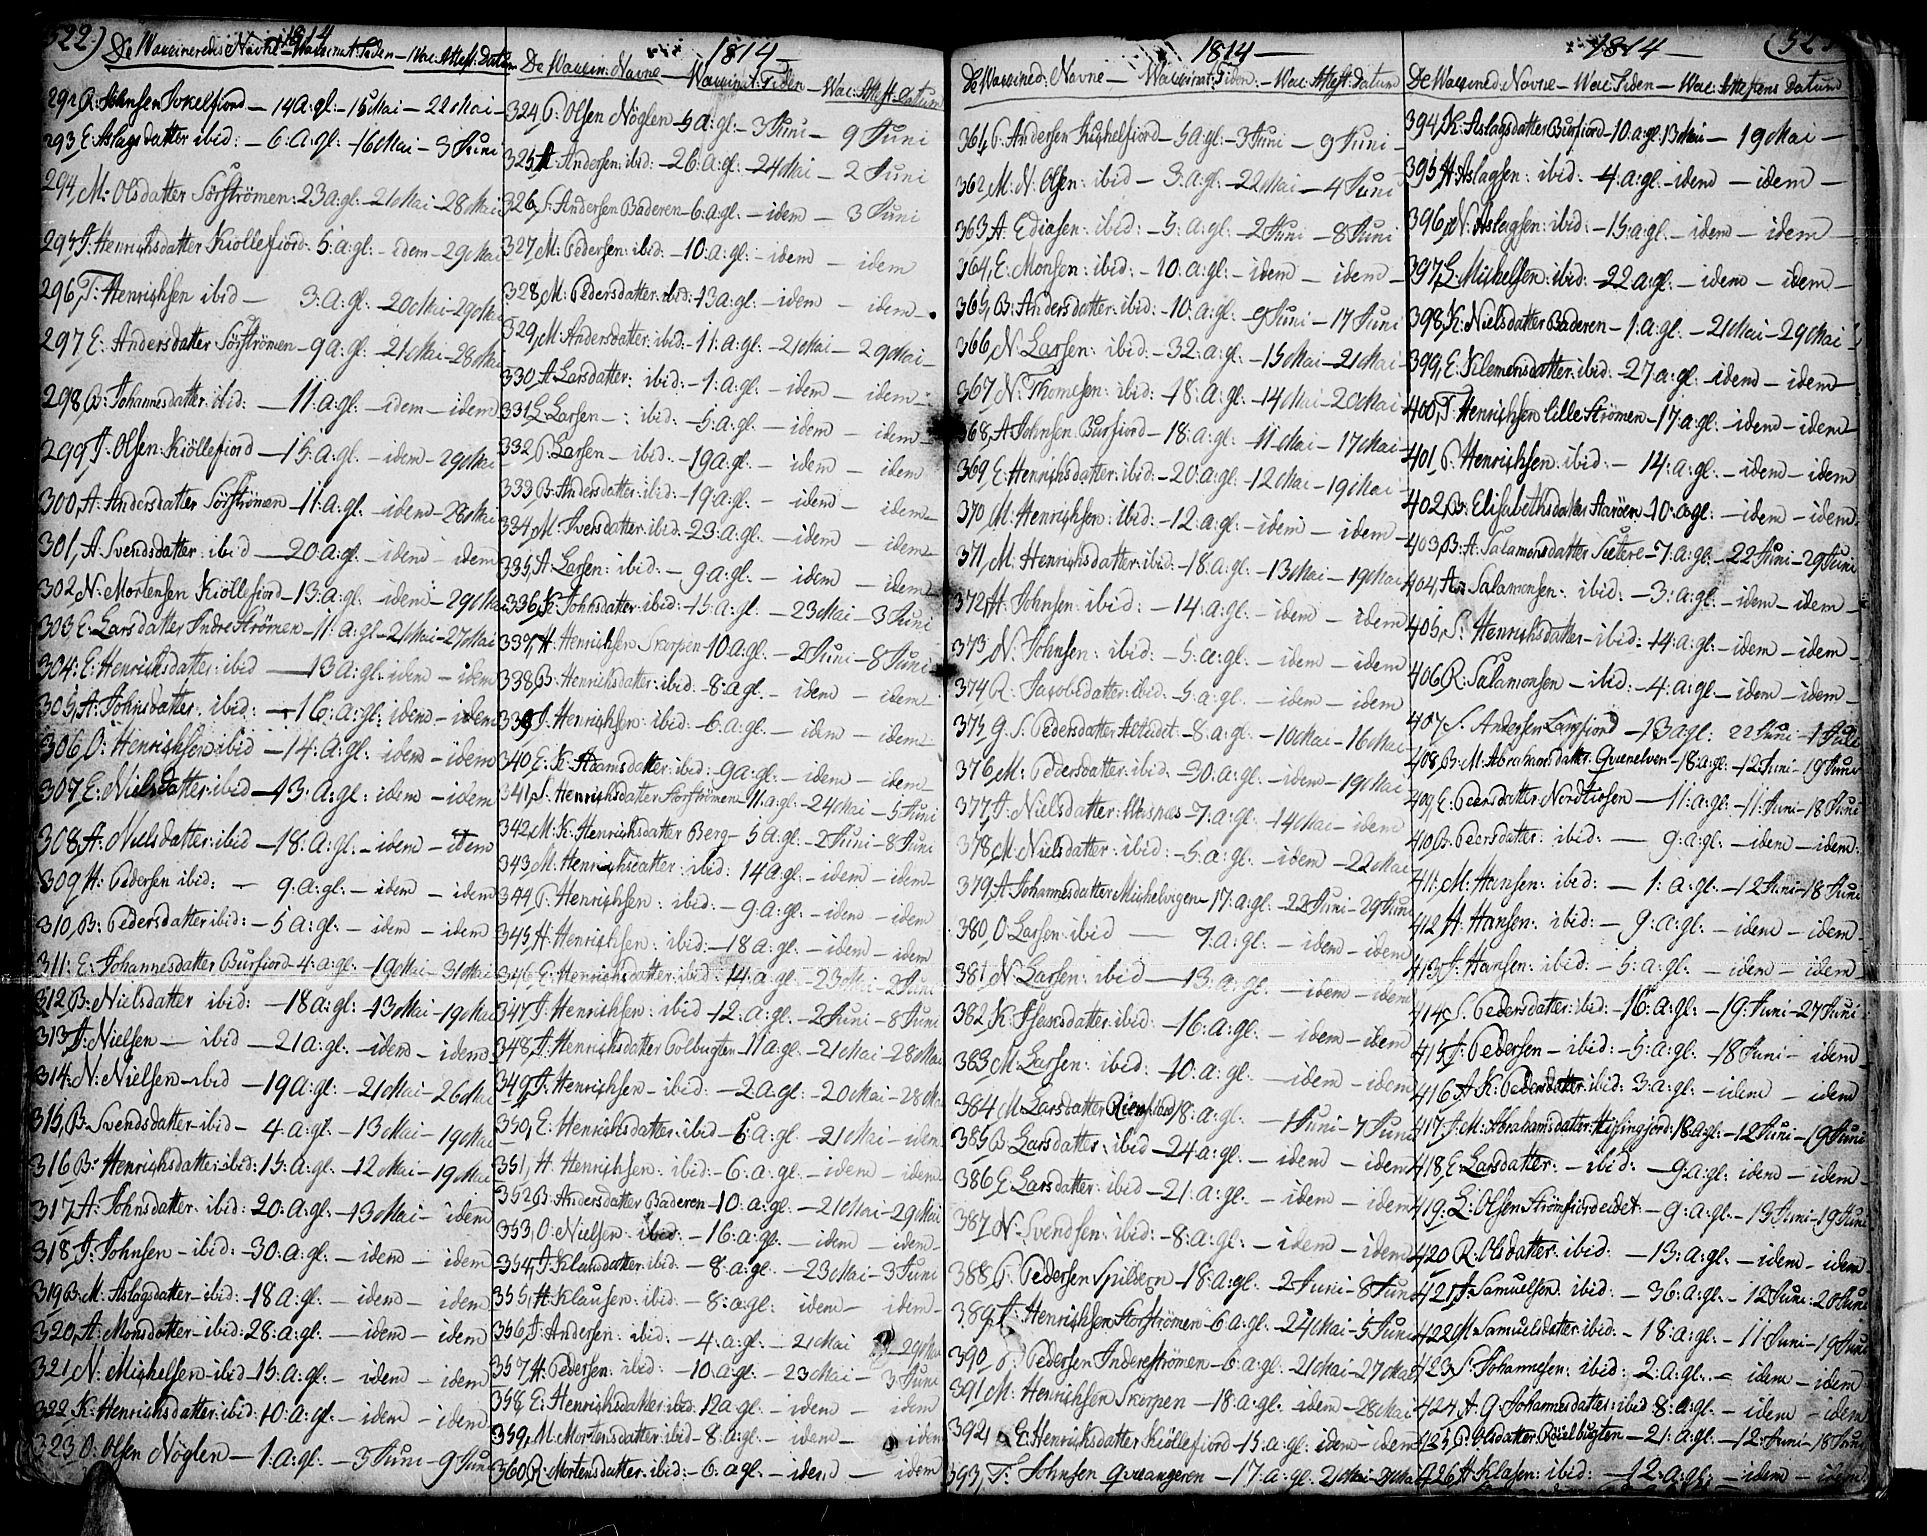 522)
1814
De Waccineredes Navne - Waccinat: Tiden - Wac: Attest: Datum
292, R: Johnsen Jokelfiord - 14 a: gl. - 15 Mai - 22 Mai -
293 E: Aslagsdatter ibid: - 6 a. gl. - 16 Mai - 3 Juni
294, M: Olsdatter Sörströmen: 23 a: gl. - 21 Mai - 28 Mai
295, J: Henrichsdatter Kiöllefiord - 5: a: gl. - idem - 29 Mai
296, T: Henrichsen ibid - 3: a: gl. - 20 Mai - 29 Mai
297 E: Andersdatter Sörströmen - 9 a: gl. - 21 Mai - 28 Mai
298, B: Johannesdatter ibid: - 11: a: gl. - idem - idem
299 J: Olsen Kiöllefiord - 15: a: gl. - idem - 29 Mai
300, A: Andersdatter Sörströmen - 11: a: gl. - idem - 28 Mai
301, A: Svendsdatter: ibid - 20: a: gl. - idem - idem
302 N: Mortensen Kiöllefiord - 13: a: gl. - idem - 29 Mai
303 E: Larsdatter Indre Strömen - 11: a: gl. - 21 Mai - 27 Mai
304: E: Henrichsdatter: ibid - 13 a: gl. idem - idem
305, A: Johnsdatter: ibid: - 16: a: gl: idem - idem
306 O: Henrichsen ibid - 14: a: gl. - idem - idem
307 E: Nielsdatter ibid - 13: a: gl: idem - idem
308, A: Nielsdatter: ibid - 18: a: gl. - idem - idem
309 H: Pedersen ibid: - 9: a: gl. - idem - idem
310, B: Pedersdatter ibid: - 5 a: gl: - idem - idem
311: E: Johannesdatter Burfiord - 4: a: gl. - 19 Mai - 31 Mai
312 B: Nielsdatter ibid: - 18 a: gl: - 13 Mai - 19 Mai
313, J: Nielsen - ibid - 21 a: gl: - idem - idem
314: N: Nielsen - ibid - 19 a: gl. - 21 Mai - 26 Mai
315, B: Svendsdatter - ibid - 4: a: gl. - 13 Mai - 19 Mai
316 B: Henrichsdatter: ibid: 15: a: gl. - 12 Mai - 19 Mai
317, A: Johnsdatter: ibid: 20: a: gl. - 13 Mai - idem
318 J: Johnsen - ibid: - 30: a: gl. - idem - idem
319 B: M: Aslagsdatter - ibid - 18 a: gl. - idem - idem
320, A: Monsdatter - ibid: 28: a: gl. - idem - idem
321 N: Michelsen - ibid 15: a: gl. - idem - idem
322 K: Henrichsdatter: ibid: 10: a: gl. - idem - idem
323 O: Olsen Nöglen - 1: a: gl. - 3 Juni - 9 Juni
1814 -
De Waccin: Navne - Waccinat: Tiden - Wac: Attest: Datum
324, P: Olsen Nöglen - 5 a: gl. - 3 Juni - 9 Juni
325 A: Andersen: ibid: - 26: a: gl. - 24 Mai - 2 Juni
326, S: Andersen Baderen - 6: a: gl. - idem - 3 Juni
327, M: Pedersen: ibid: - 10: a: gl. - idem - idem
328, M: Pedersdatter: ibid: - 13 a: gl. - idem - idem -
329, M: Andersdatter: ibid: - 11: a: gl. - 21 Mai - 29 Mai -
330, A: Larsdatter: ibid: - 1: a: gl. - idem - idem -
331 L: Larsen - : ibid: - 5: a: gl. - idem - idem -
332, P: Larsen - ibid: - 19 a: gl. - idem - idem
333 B: Andersdatter: ibid: - 19: a: gl. - idem - idem
334, M: Iversdatter: ibid: 23: a: gl. - idem - idem -
335, A: Larsen: ibid: - 9 a: gl. - idem - idem
336, K: Johnsdatter: ibid: - 15: a: gl. - 23 Mai - 3 Juni
337, H: Henrichsen Skorpen 10: a: gl. - 2 Juni - 8 Juni
338 B: Henrichsdatter: ibid: - 8: a: gl. - idem - idem
339 J: Henrichsen: ibid: - 6: a: gl. - idem - idem
340, E: K: Adamsdatter: ibid: - 9 a: gl. - idem - idem
341, S: Henrichsdatter Storströmen 11: a: gl. - 24 Mai - 5 Juni
342, M: K: Henrichsdatter Berg - 5 a: gl. - 2 Juni - 8 Juni
343 M: Henrichsdatter: ibid: 14 a: gl. - idem - idem
344, P: Henrichsen: ibid: - 9: a: gl. - idem - idem
345, H: Henrichsen: ibid: - 18 a: gl. - idem - idem
346 E: Henrichsdatter: ibid: 14: a: gl. - 23 Mai - 2 Juni
347 J: Henrichsen: ibid - 12: a: gl. - 2 Juni - 8 Juni
348, J: Henrichsdatter Colbugten - 11 a: gl. - 21 Mai - 28 Mai
349, J: Henrichsen - ibid: - 2: a: gl. - 20 Mai - 28 Mai
350, E: Henrichsdatter: ibid - 6: a: gl. - 21 Mai - idem
351, H: Henrichsen: ibid: - 6: a: gl. - idem - idem
352 B: Andersdatter Baderen - 10: a: gl. - 21 Mai - 29 Mai
353, O: Nielsen ibid: - 16: a: gl. - idem - idem -
354, J: Klausdatter: ibid: - 8: a: gl. - 23 Mai - 3 Juni
355, H: Klausen: ibid: - 8: a: gl: idem - idem -
356, J: Andersen: ibid: - 4: a: gl. - 21 Mai - 29 Mai
357, H: Pedersen: ibid: - 10: a: gl. - 23 Mai - 3 Juni
358 E: Henrichsdatter ibid: 12 a: gl. - idem - idem
359, M: Mortensdatter: ibid - 8: a: gl. - idem - idem
360 R: Mortensdatter: ibid: - 6: a: gl. - idem - idem
1814 -
De Waccined: Navne - Waccinat: Tiden: - Wac: Attest: Datum
361, P: Andersen Kiekelfiord - 5 a: gl. - 3 Juni - 9 Juni -
362 M: N: Olsen: ibid - 3: a: gl. - 22 Mai - 4 Juni
363 A: Ediasen: ibid: - 5: a: gl. - 2 Juni - 8 Juni
364, E: Monsen: ibid: - 10: a: gl. - idem - idem -
365, B: Andersdatter: ibid: - 10: a: gl. - 9 Juni - 17 Juni
366, N: Larsen: ibid: - 32: a: gl. - 15 Mai - 21 Mai
367, N: Thomesen: ibid: - 18: a: gl. - 14 Mai - 20 Mai
368, A: Johnsen Burfiord - 18: a: gl. - 11 Mai - 17 Mai
369 E: Henrichsdatter: ibid: - 20: a: gl. - 12 Mai - 19 Mai -
370 M: Henrichsen: ibid: - 12: a: gl. - idem - idem -
371, M: Henrichsdatter: ibid: - 18: a: gl. - 13 Mai - 19 Mai
372 H: Johnsen: ibid: - 14: a: gl. - idem - idem
373, N: Johnsen: ibid: - 5: a: gl. - idem - idem
374 R: Jacobsdatter: ibid: - 5: a: gl. - idem - idem
375 G: S: Pedersdatter Alteidet - 8: a: gl. - 10 Mai - 16 Mai -
376 M: Pedersdatter: ibid: - 30: a: gl. - idem - 19 Mai
377, J: Nielsdatter: - 7: a: gl. - 14 Mai - idem
378, M: Nielsdatter: ibid: - 5: a: gl. - idem - 22 Mai
379, A: Johannesdatter Michelvigen - 17: a: gl. - 22 Juni - 29 Juni
380, O: Larsen: ibid - 7: a: gl. - idem - idem
381, N: Larsen: ibid - 13: a: gl. - idem - idem
382, K: ibid: - 16: a: gl. - idem - idem
383, M: Larsen: ibid: - 10: a: gl. - idem - idem
384 M: Larsdatter Riemfiord 18: a: gl. - 1 Juni - 7 Juni
385 B: Larsdatter: ibid - 24: a: gl. - idem - idem
386 E: Larsdatter: ibid - 21: a: gl. - idem - idem
387, N: Svendsen: ibid: - 8: a: gl. - idem - idem
388, P: Pedersen Spildern - 18: a: gl. 2 Juni - 8 Juni
389, J: Henrichsen Storströmen - 6: a: gl. - 24 Mai - 5 Juni
390, P: Pedersen Indreströmen - 6: a: gl. - 21 Mai - 27 Mai
391 M: Henrichsen Skorpen - 18: a: gl. - idem - 28 Mai
392, E: Henrichsdatter Kiöllefiord - 15: a: gl. idem - idem
393, T: Johnsen Qvænangeren - 17: a: gl. 21 Mai - Mai
1814 -
(523
De Waccined: Navne - Wac: Tiden - Wac: Attestens Datum
394, K: Aslagsdatter Burfiord - 10: a: gl. 13 Mai - 19 Mai -
395 H: Aslagsen: ibid: - 4: a: gl. - idem - idem -
396, N: Aslagsen: ibid: - 15: a: gl. - idem - idem -
397, L: Michelsen: ibid: - 22 a: gl. - idem - idem -
398, K: Nielsdatter Baderen - 1: a: gl. - 21 Mai - 29 Mai
399, E: Klemensdatter: ibid: - 27: a: gl. - idem - idem
400, T: Henrichsen Lille Strömen - 17: a: gl. - idem - idem
401, P: Henrichsen: ibid: - 14: a: gl. - idem - idem
402, B: Elisabethsdatter Haröen - 10: a: gl: - idem - idem
403, B: A: Salamonsdatter Sætere - 7: a: gl. - 22 Juni - 29 Juni
404, An Salamonsen: ibid: - 3: a: gl. - idem - idem -
405, S: Henrichsdatter - ibid: - 14: a: gl. - idem - idem -
406 R: Salamonsen - ibid: - 4: a: gl. - idem - idem -
407 S: Andersen Langfiord - 13 a: gl: 22 Juni - 1 Juli
408 B: M: Abrahamsdatter Qvænelven - 18: a: gl. - 12 Juni - 19 Juni
409, E: Peersdatter - 11: a: gl. - 11 Juni - 18 Juni
410 B: Peersdatter: ibid: - 9: a: gl. - idem - idem:
411, M: Hansen: ibid: - 1: a: gl. - 12 Juni - 18 Juni
412 H: Hansen: ibid: - 9: a: gl. - idem - idem
413 J: Hansen: ibid: - 5: a: gl. - idem - idem
414 S: Pedersdatter: ibid: - 16: a: gl. - 19: Juni - 27 Juni
415 J: Pedersen - ibid: - 5: a: gl. - 18 Juni - idem
416 A: K: Pedersdatter: ibid: 3: a: gl. - idem - idem
417, J: M: Abrahamsdatter Hessingfiord: 18: a: gl. - 12 Juni - 19 Juni
418, E: Larsdatter: - ibid: - 9 a: gl: idem - idem
419: L: Olsen Strömfiordeidet - 9: a: gl. - 13 Juni - 19 Juni
420 R: Olsdatter: ibid: - 13: a: gl. - idem - idem
421, J: Samuelsen: ibid: - 36: a: gl. - 12 Juni - 20 Juni
422 M: Samuelsdatter: ibid: - 18: a: gl. - 11 Juni - 19 Juni
423 S: Johannesen: ibid: - 2: a: gl. - idem - idem
424 A: G: Johannesdatter: ibid: 8: a: gl. - idem - idem
425 P: Olsdatter - 21: a: gl. - 12: Juni - 18 Juni
426 A: Klasen: ibid: - 12: a: gl: - idem - idem